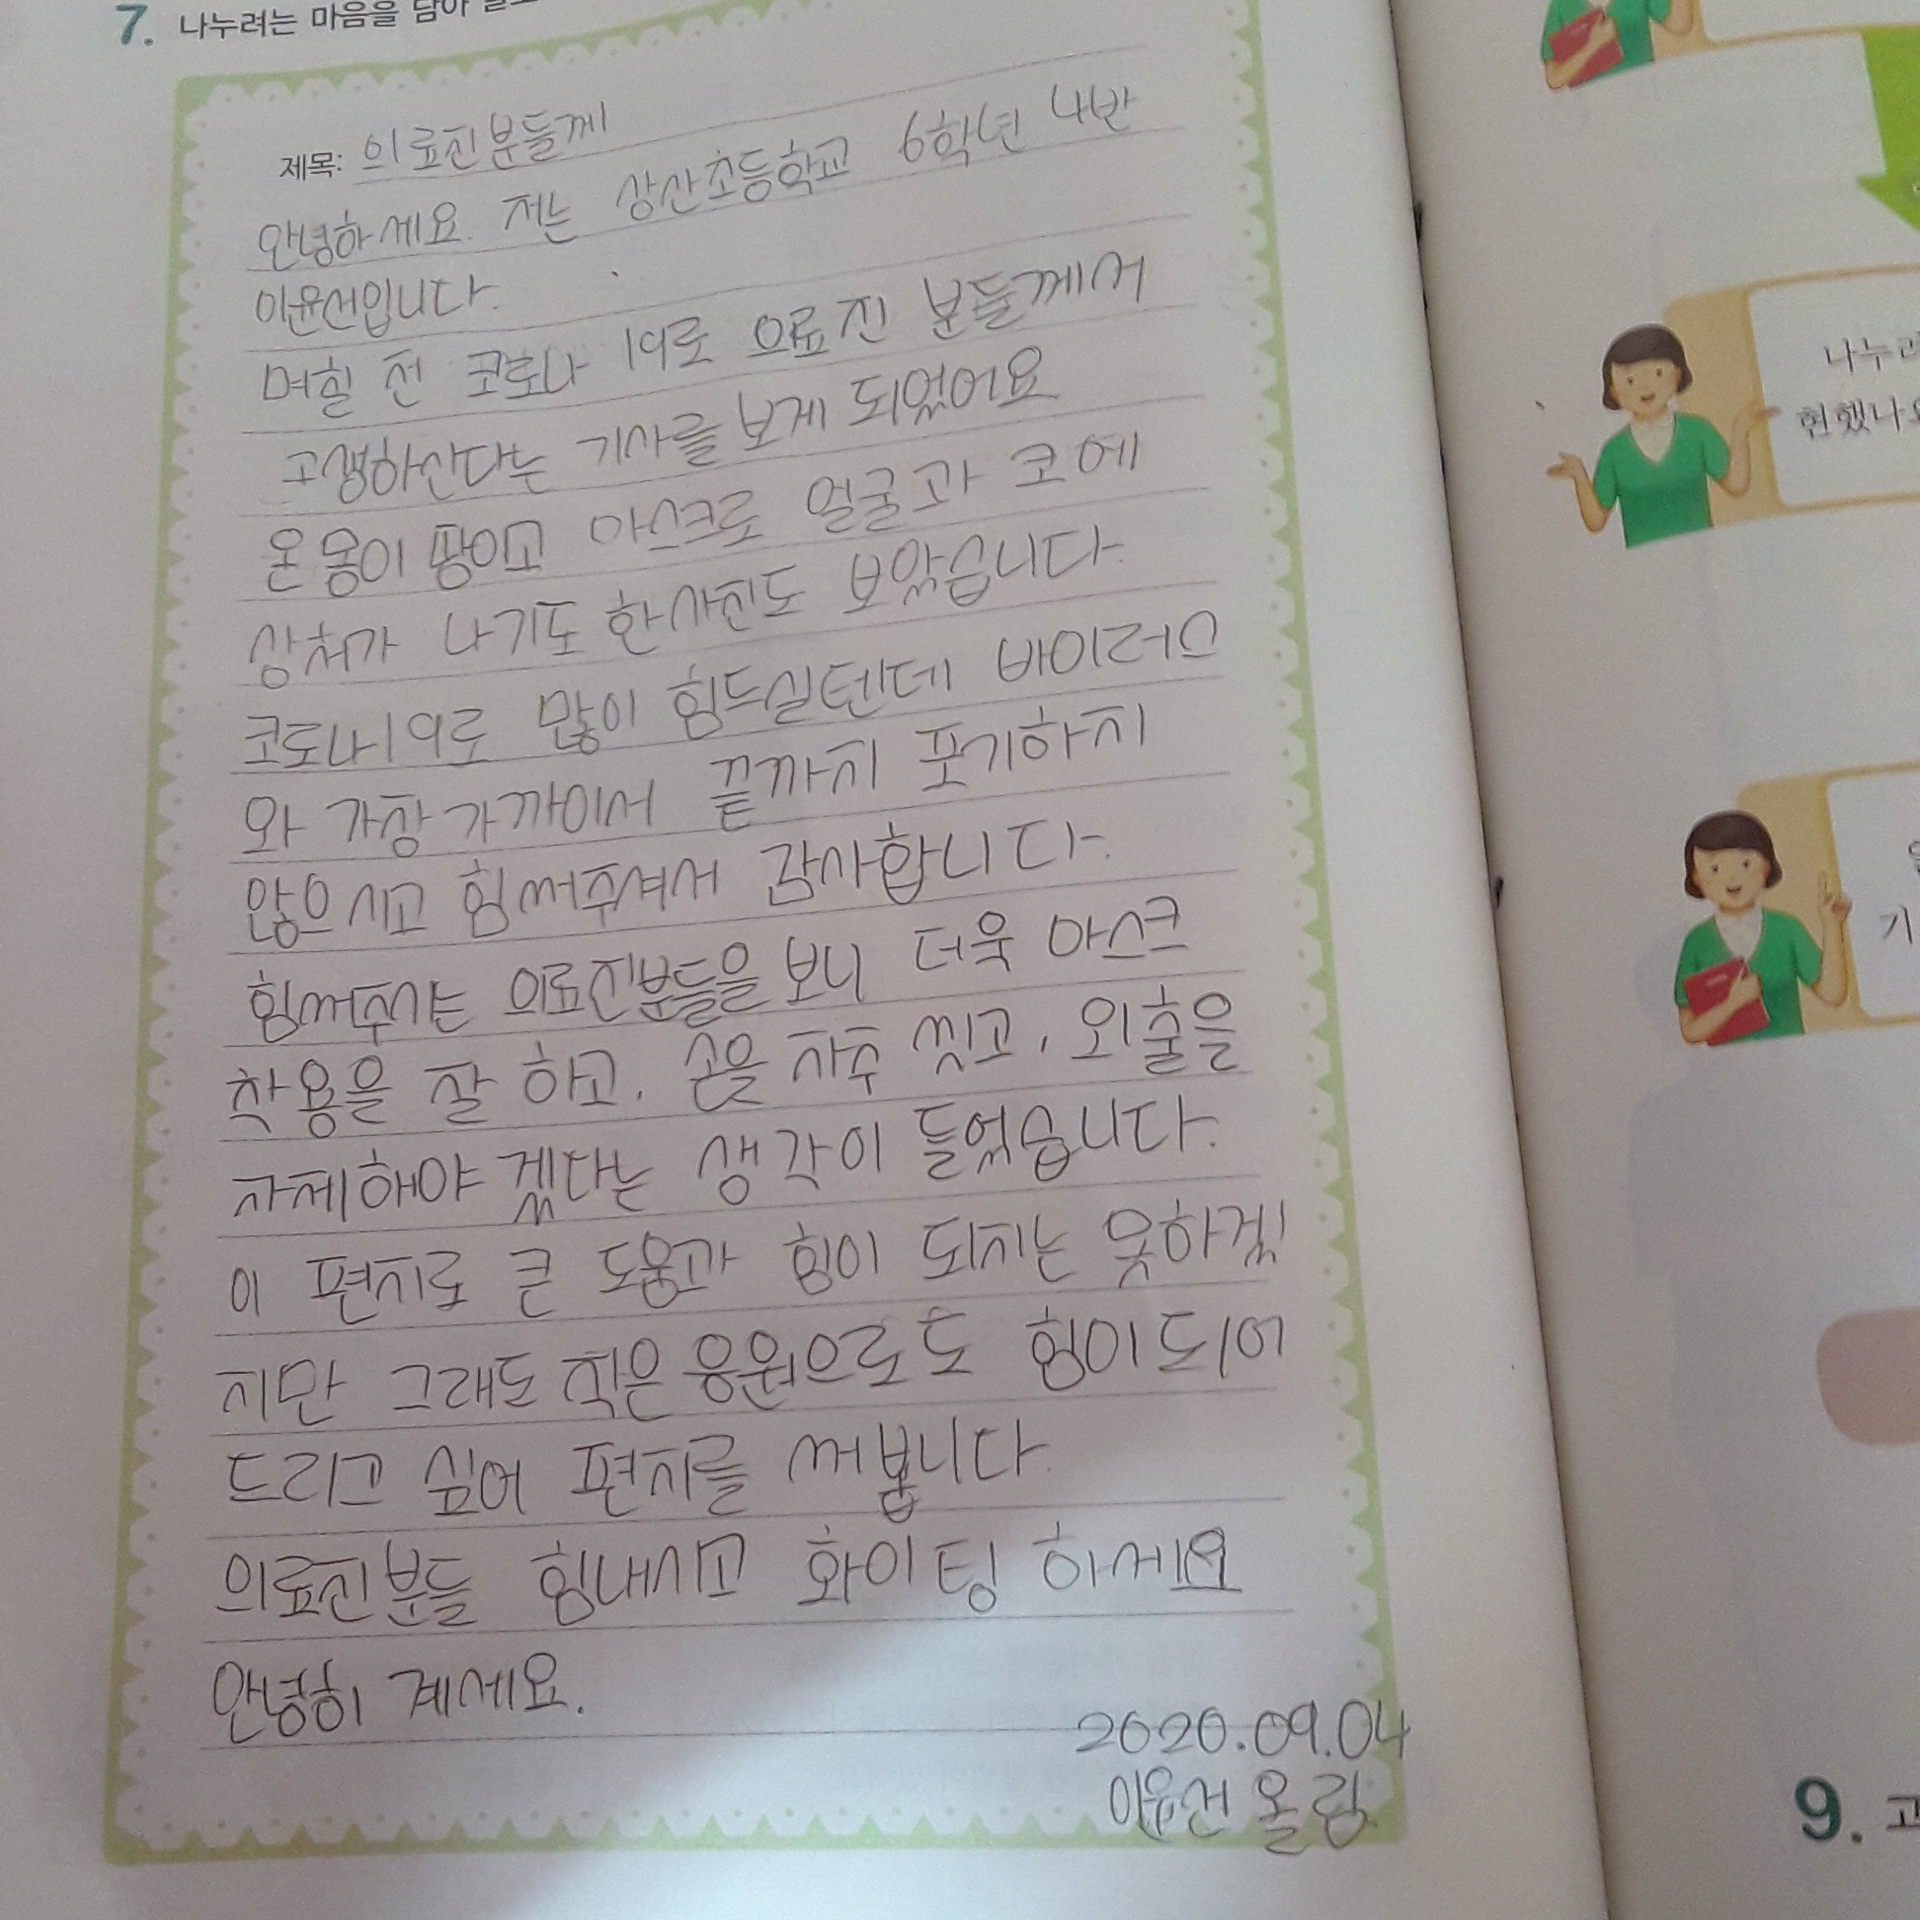 7. 나누려는 마음을 담아
제목: 의료진분들께
안녕하세요. 저는 상산초등학교 6학년 4반
이윤선입니다.
며칠 전 코로나 19로 으료진 분들께서
고생하신다는 기사를 보게 되었어요
온 몸이 땀이고 마스크로 얼굴과 코에
상처가 나기도 한 사진도 보았습니다.
코로나19로 많이 힘드실텐데 바이러스
와 가장 가까이서 끝까지 포기하지
않으시고 힘써주셔서 감사합니다.
힘써주시는 의료진분들을 보니 더욱 마스크
착용을 잘 하고, 손을 자주 씻고, 외출을
자제해야 겠다는 생각이 들었습니다.
이 편지로 큰 도움과 힘이 되지는 못하겠
지만 그래도 작은 응원으로도 힘이 되어
드리고 싶어 편지를 써봅니다.
의료진분들 힘내시고 화이팅 하세요
안녕히 계세요.
2020.09.04
이윤선 올림
나누려
현했나요
기
9. 고